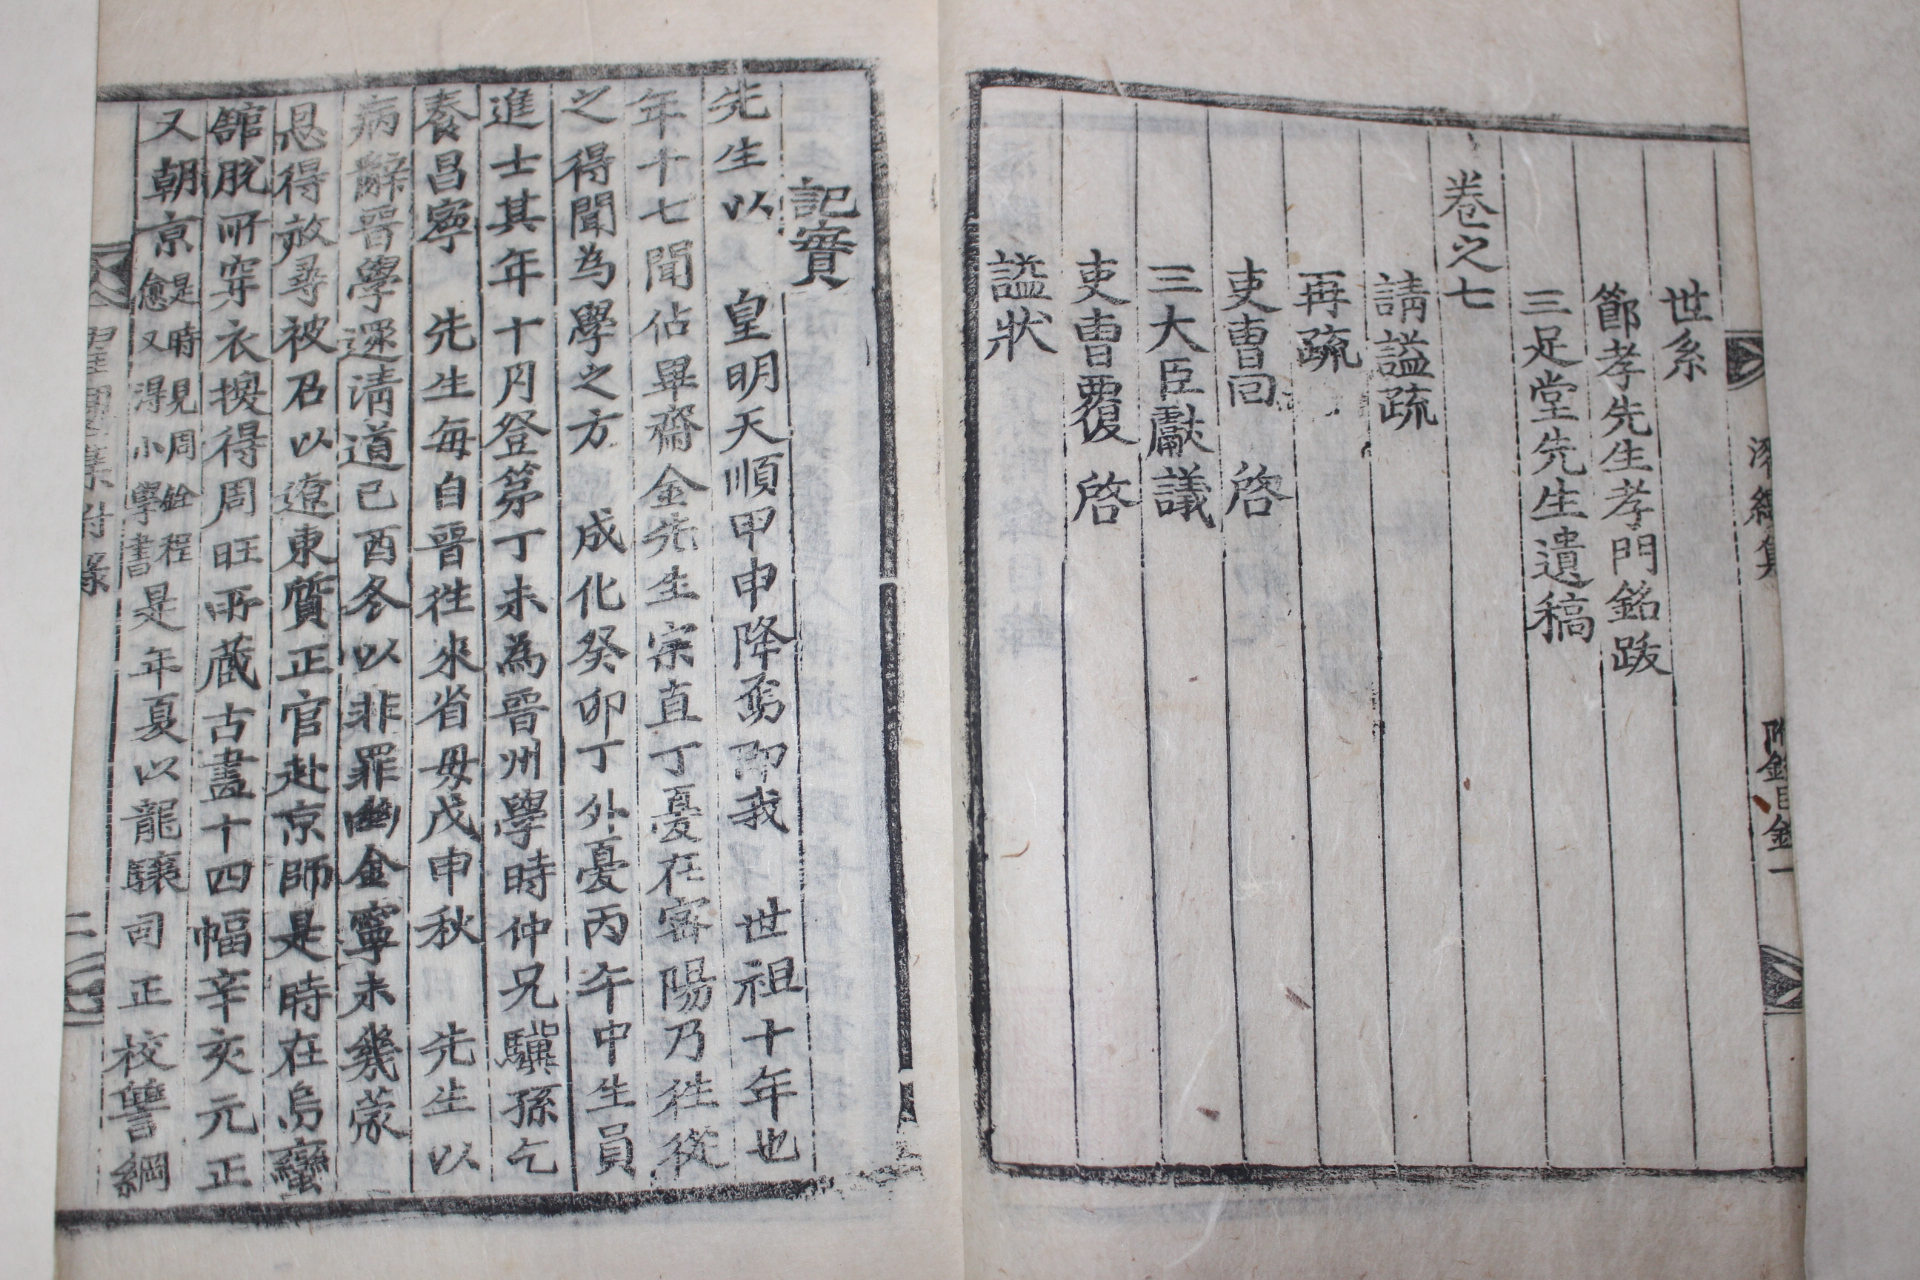 世系
節孝先生孝門銘跋
三足堂先生遺稿
卷之七
請謚疏
再疏
吏曹回 啓
三大臣獻議
吏曹覆 啓
謚狀
濯纓集 附錄目錄 一
記實
先生以 皇明天順甲申降 卽我 世祖十年也
年十七聞佔畢齋金先生宗直丁憂在密陽乃往從
之得聞為學之方 成化癸卯丁外憂丙午中生員
進士其年十月登第丁未為晉州學時仲兄驥孫乞
養昌寧 先生每自晉徃來省母戊申秋 先生以
病辭晉學還淸道己酉冬以非罪幽金寧未幾蒙
恩得放尋被召以遼東質正官赴京師是時在烏蠻
舘脫所穿衣換得周旺所蔵古畫十四幅辛亥元正
又朝京是時見周銓程愈又淂小學書是年夏以龍驤司正校讐綱
附錄 二